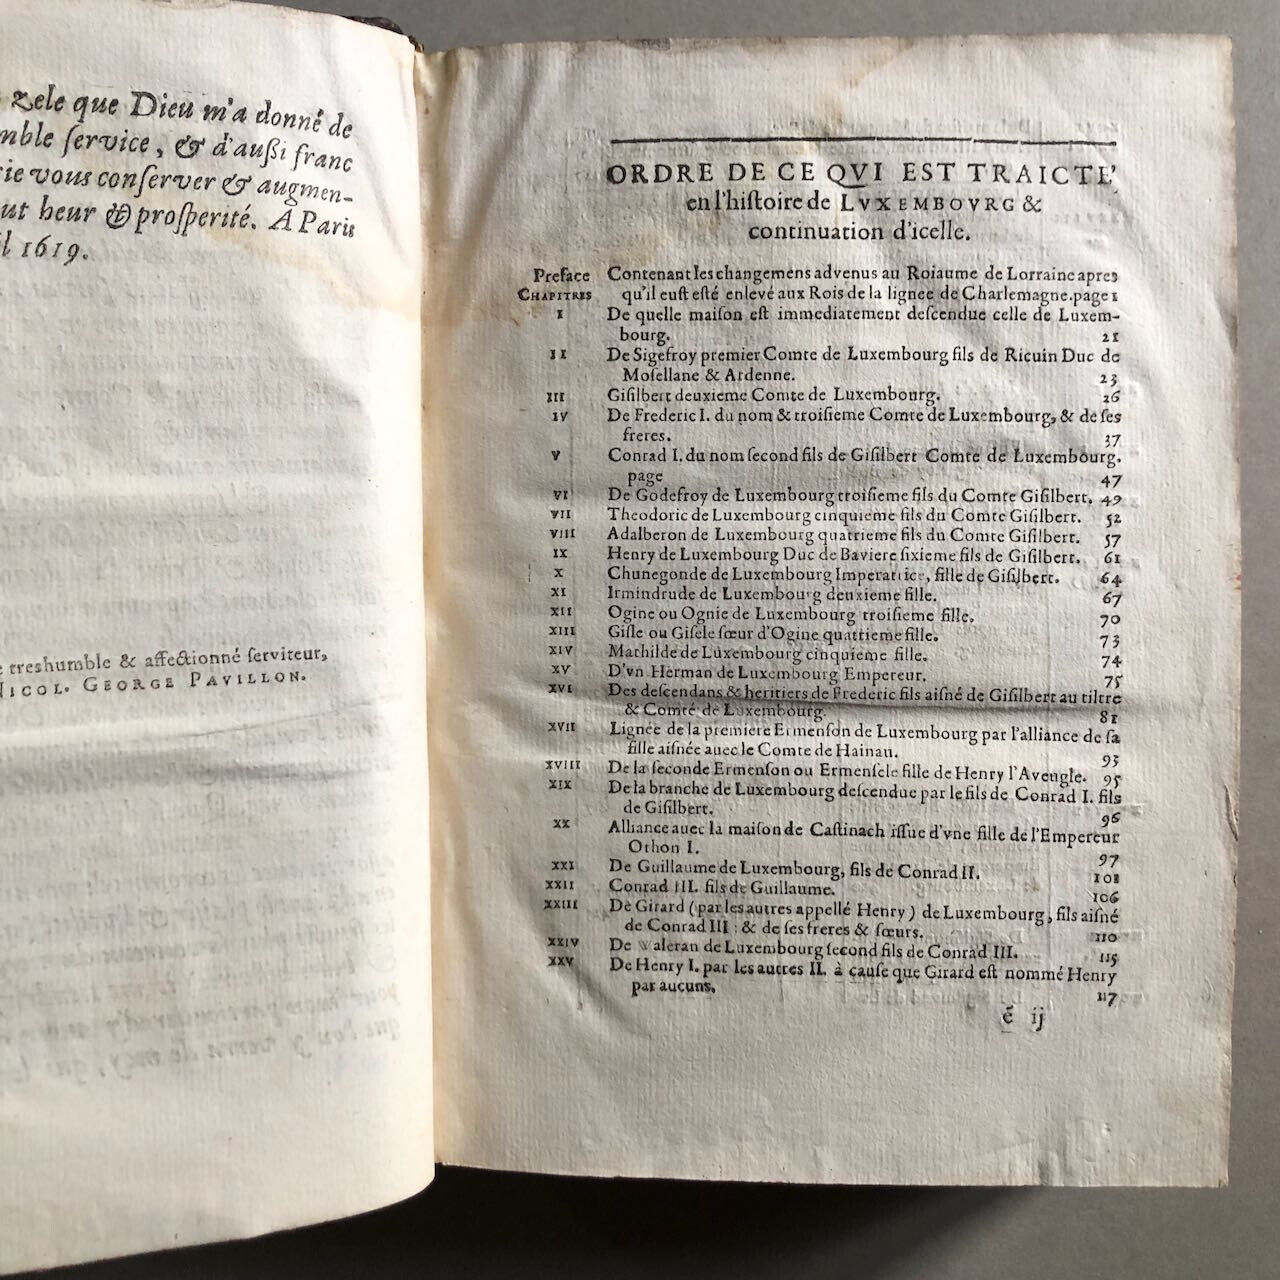 zele que Dieu m'a donné de
mble ſervice, & d'auſſi franc
rie vous conſerver & augmen-
ut heur & proſperité. A Paris
il 1619.
e treshumble & affectionné ſerviteur,
NICOL. GEORGE PAVILLON.
ORDRE DE CE QVI EST TRAICTE'
en l'hiſtoire de LVXEMBOVRG &
continuation d'icelle.
Preface Contenant les changemens advenus au Roiaume de Lorraine apres
CHAPITRES qu'il euſt eſté enlevé aux Rois de la lignee de Charlemagne. page 1
I De quelle maiſon eſt immediatement deſcendue celle de Luxem-
bourg. 21
II De Sigefroy premier Comte de Luxembourg fils de Ricuin Duc de
Moſellane & Ardenne. 23
III Giſilbert deuxieme Comte de Luxembourg. 26
IV De Frederic I. du nom & troiſieme Comte de Luxembourg, & de ſes
freres. 37
V Conrad I. du nom ſecond fils de Giſilbert Comte de Luxembourg.
page 47
VI De Godefroy de Luxembourg troiſieme fils du Comte Giſilbert. 49
VII Theodoric de Luxembourg cinquieme fils du Comte Giſilbert. 52
VIII Adalberon de Luxembourg quatrieme fils du Comte Giſilbert. 57
IX Henry de Luxembourg Duc de Baviere ſixieme fils de Giſilbert. 61
X Chunegonde de Luxembourg Imperatrice, fille de Giſilbert. 64
XI Irmindrude de Luxembourg deuxieme fille. 67
XII Ogine ou Ognie de Luxembourg troiſieme fille. 70
XIII Giſle ou Giſele ſœur d'Ogine quatrieme fille. 73
XIV Mathilde de Luxembourg cinquieme fille. 74
XV D'vn Herman de Luxembourg Empereur. 75
XVI Des deſcendans & heritiers de Frederic fils aiſné de Giſilbert au tiltre
& Comté de Luxembourg. 81
XVII Lignée de la premiere Ermenſon de Luxembourg par l'alliance de ſa
fille aiſnée avec le Comte de Hainau. 93
XVIII De la ſeconde Ermenſon ou Ermenſele fille de Henry l'Aveugle. 95
XIX De la branche de Luxembourg deſcendue par le fils de Conrad I. fils
de Giſilbert. 96
XX Alliance avec la maiſon de Caſtinach iſſue d'vne fille de l'Empereur
Othon I. 97
XXI De Guillaume de Luxembourg, fils de Conrad II. 101
XXII Conrad III. fils de Guillaume. 106
XXIII De Girard (par les autres appellé Henry) de Luxembourg, fils aiſné
de Conrad III: & de ſes freres & ſœurs. 110
XXIV De Waleran de Luxembourg ſecond fils de Conrad III. 115
XXV De Henry I. par les autres II. à cauſe que Girard eſt nommé Henry
par aucuns. 117
é ij